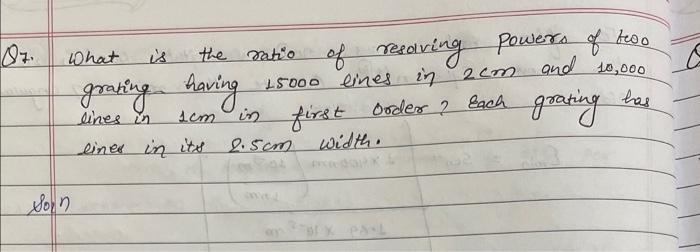 Q7. What is the ratio of resolving powers of two
grating having 15000 lines in 2cm and 10,000
lines in 1cm in first order? Each grating has
lines in its 2.5cm width.
Soln